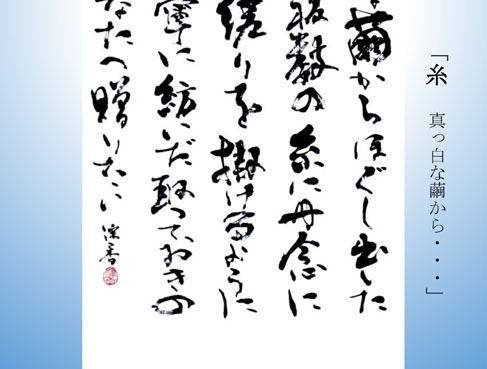 「糸　真っ白な繭から・・・」
繭からほぐし出した
複数の糸に丹念に
縒りを掛けるように
に紡いだ取っておきの
なたへ贈りたい